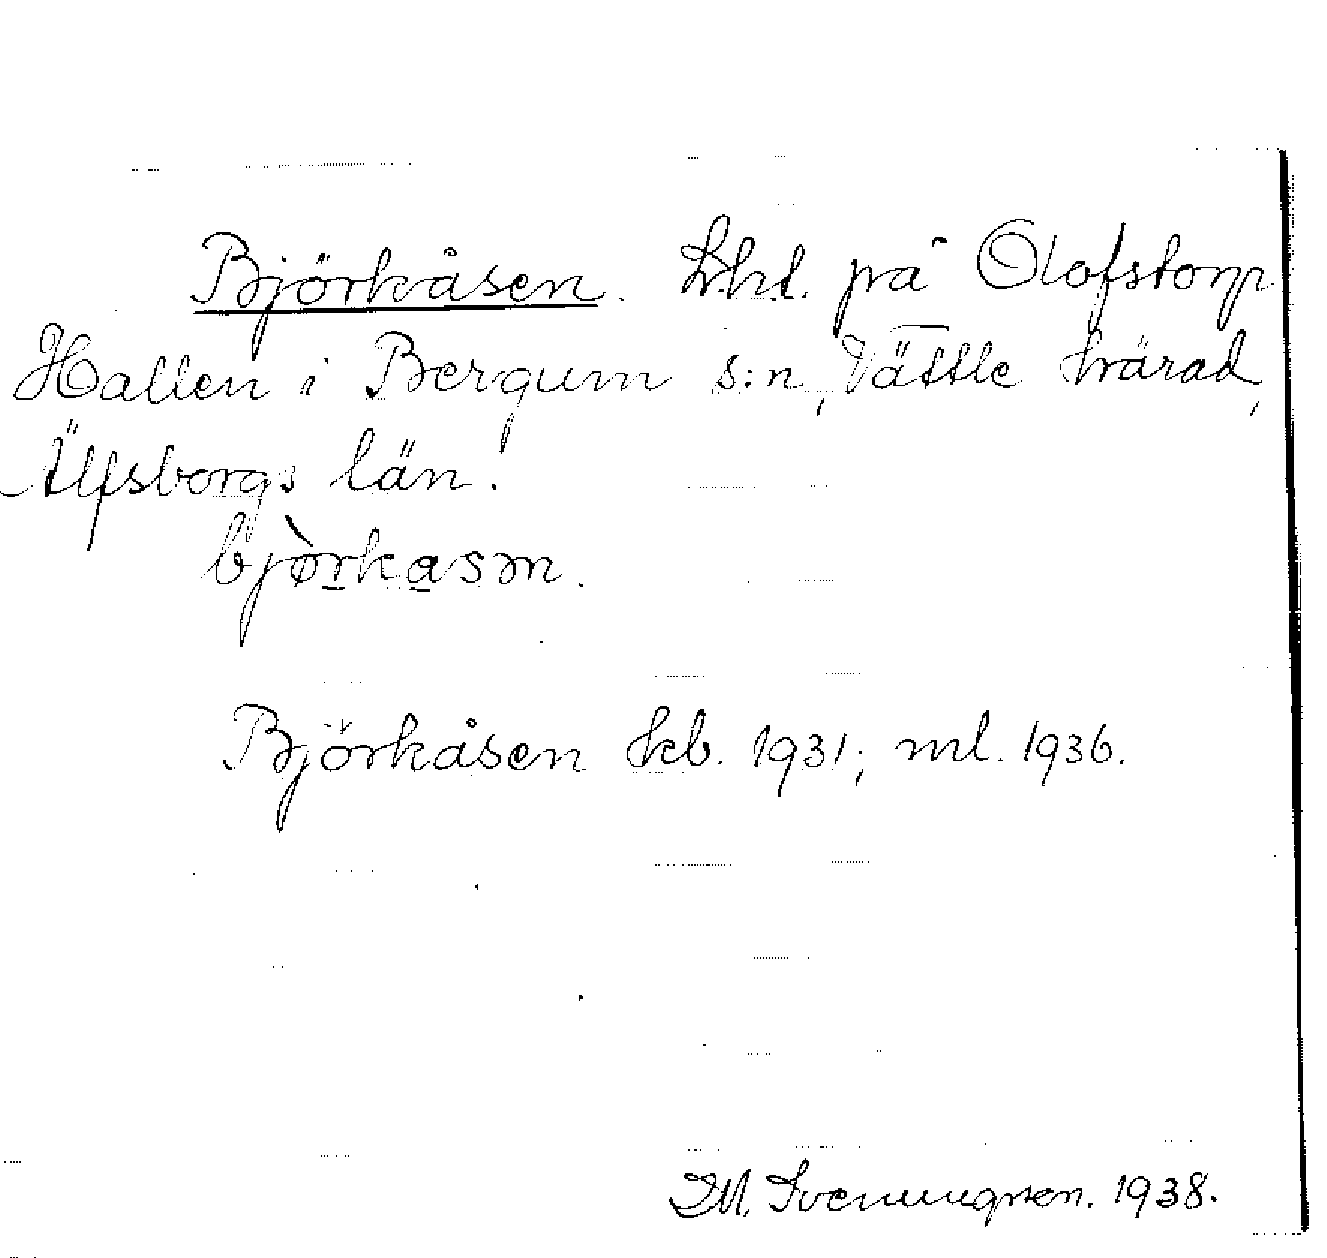 Björkåsen. Lht. på Olofstorp
Hallen i Bergum s:n, Vättle härad,
Älfsborgs län.
bjòrkasən.
Björkåsen kb. 1931; ml. 1936.
M. Svenningson. 1938.